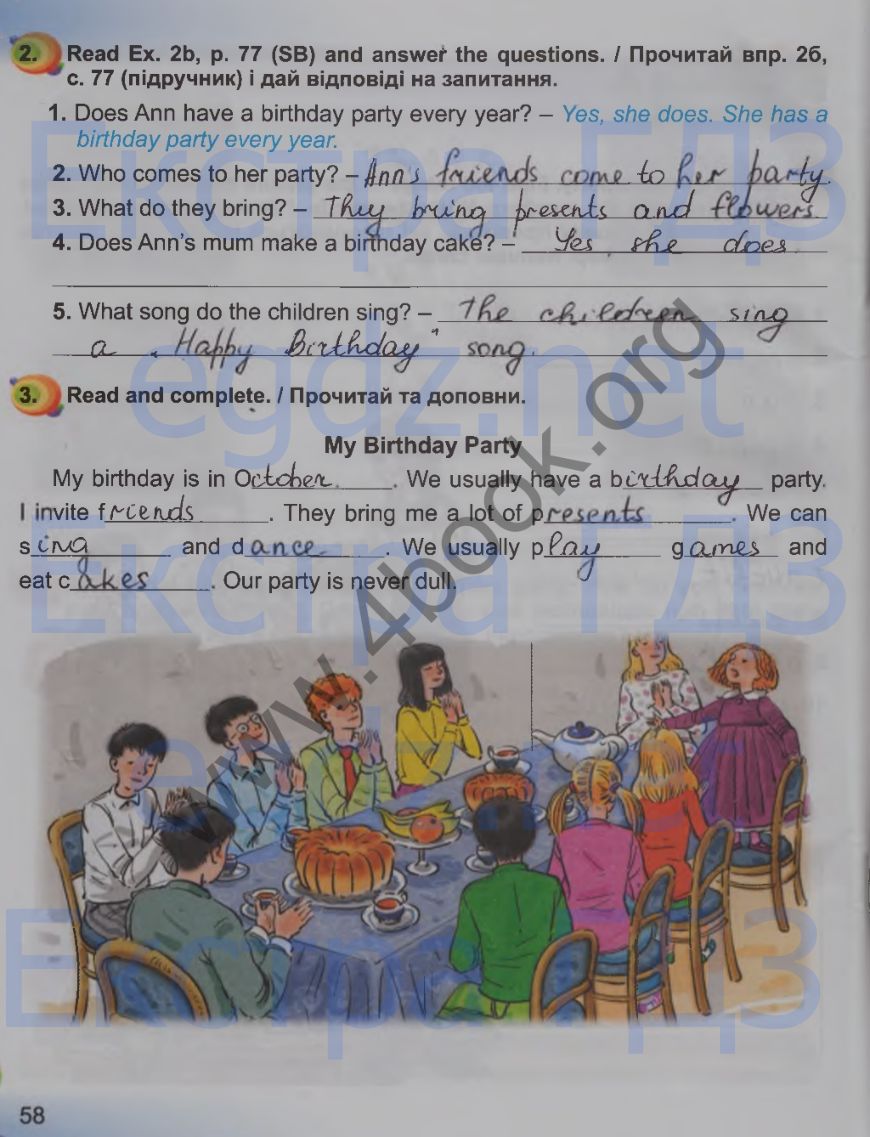 2. Read Ex. 2b, p. 77 (SB) and answer the questions. / Прочитай впр. 2б,
с. 77 (підручник) і дай відповіді на запитання.
1. Does Ann have a birthday party every year? – Yes, she does. She has a
birthday party every year.
Екстра ГДЗ
2. Who comes to her party? – Ann's friends come to her party.
3. What do they bring? – They bring presents and flowers.
4. Does Ann's mum make a birthday cake? – Yes, she does.
5. What song do the children sing? – The children sing
a „Happy Birthday" song.
egdz.net
3. Read and complete. / Прочитай та доповни.
My Birthday Party
My birthday is in October. . We usually have a birthday party.
I invite friends . They bring me a lot of presents . We can
sing and dance . We usually play games and
eat cakes . Our party is never dull.
Екстра ГДЗ
www.4book.org
egdz.net
Екстра ГДЗ
58